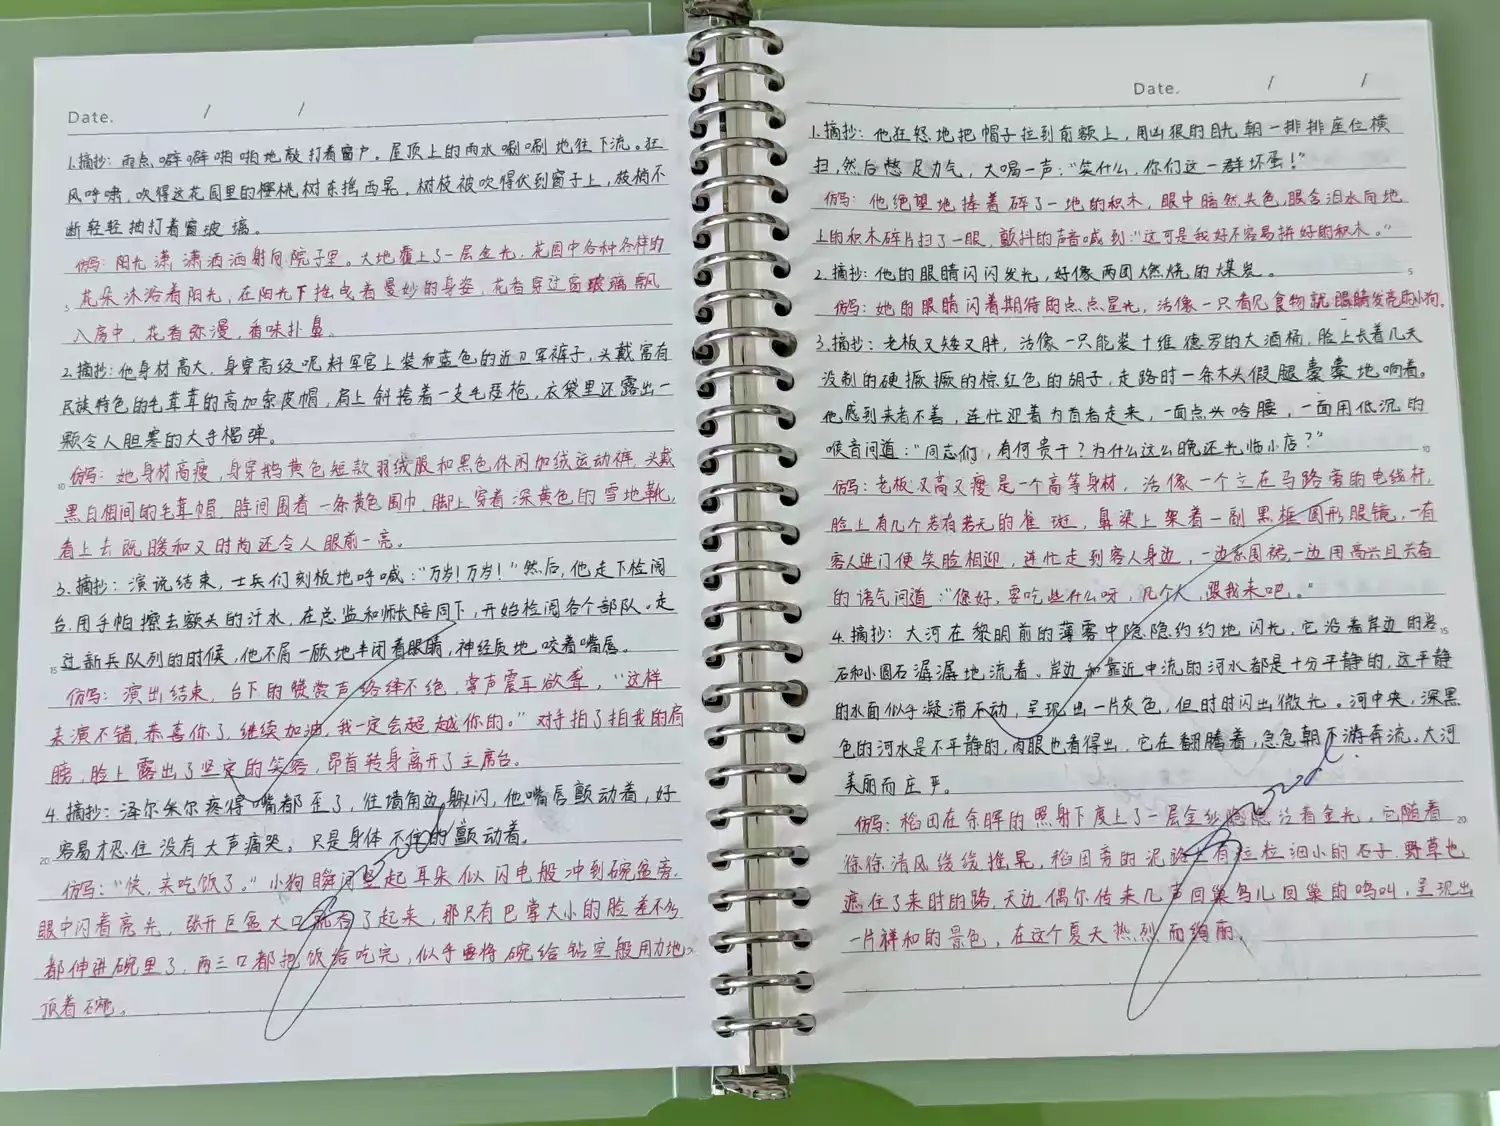 Date. / /
1.摘抄：雨点噼噼啪啪地敲打着窗户。屋顶上的雨水唰唰地往下流。狂
风呼啸，吹得这花园里的樱桃树东摇西晃，树枝被吹得伏到窗子上，枝梢不
断轻轻抽打着窗玻璃。
仿写：阳光潇潇洒洒射向院子里。大地覆上了一层金光。花园中各种各样的
花朵沐浴着阳光，在阳光下摇曳着曼妙的身姿，花香穿过窗玻璃飘
入房中，花香弥漫，香味扑鼻。
2.摘抄：他身材高大，身穿高级呢料军官上装和蓝色的近卫军裤子，头戴富有
民族特色的毛茸茸的高加索皮帽，肩上斜挎着一支毛瑟枪，衣袋里还露出一
颗令人胆寒的大手榴弹。
仿写：她身材高瘦，身穿鹅黄色短款羽绒服和黑色休闲加绒运动裤，头戴
黑白相间的毛茸帽，脖间围着一条黄色围巾，脚上穿着深黄色的雪地靴，
看上去既暖和又时尚还令人眼前一亮。
3.摘抄：演说结束，士兵们刻板地呼喊：“万岁！万岁！”然后，他走下检阅
台，用手帕擦去额头的汗水，在总监和师长陪同下，开始检阅各个部队。走
过新兵队列的时候，他不屑一顾地半闭着眼睛，神经质地咬着嘴唇。
仿写：演出结束，台下的赞赏声络绎不绝，掌声震耳欲聋，“这样
表演不错，恭喜你了，继续加油，我一定会超越你的。”对手拍了拍我的肩
膀，脸上露出了坚定的笑容，昂首转身离开了主席台。
4.摘抄：泽尔朵尔疼得嘴都歪了，往墙角边躲闪，他嘴唇颤动着，好
容易才忍住没有大声痛哭，只是身体不住的颤动着。
仿写：“快，来吃饭了。”小狗瞬间竖起耳朵似闪电般冲到碗盆旁，
眼中闪着亮光，张开巨盆大口就吞了起来，那只有巴掌大小的脸差不多
都伸进碗里了，两三口都把饭给吃完，似乎要将碗给钻空般用力地
顶着碗。
Date. / /
1.摘抄：他狂怒地把帽子拉到前额上，用凶狠的目光朝一排排座位横
扫，然后憋足力气，大喝一声：“笑什么，你们这一群坏蛋！”
仿写：他绝望地捧着碎了一地的积木，眼中暗然失色，眼含泪水向地
上的积木碎片扫了一眼，颤抖的声音喊到：“这可是我好不容易拼好的积木。”
2.摘抄：他的眼睛闪闪发光，好像两团燃烧的煤炭。
仿写：她的眼睛闪着期待的点点星光，活像一只看见食物就眼睛发亮的小狗。
3.摘抄：老板又矮又胖，活像一只能装十维德罗的大酒桶，脸上长着几天
没刮的硬撅撅的棕红色的胡子，走路时一条木头假腿橐橐地响着。
他感到来者不善，连忙迎着为首者走来，一面点头哈腰，一面用低沉的
喉音问道：“同志们，有何贵干？为什么这么晚还光临小店？”
仿写：老板又高又瘦是一个高等身材，活像一个立在马路旁的电线杆，
脸上有几个若有若无的雀斑，鼻梁上架着一副黑框圆形眼镜，一有
客人进门便笑脸相迎，连忙走到客人身边，一边系围裙，一边用高兴且兴奋
的语气问道：“您好，要吃些什么呀，几个人，跟我来吧。”
4.摘抄：大河在黎明前的薄雾中隐隐约约地闪光，它沿着岸边的岩
石和小圆石潺潺地流着。岸边和靠近中流的河水都是十分平静的，这平静
的水面似乎凝滞不动，呈现出一片灰色，但时时闪出微光。河中央，深黑
色的河水是不平静的，肉眼也看得出，它在翻腾着，急急朝下游奔流。大河
美丽而庄严。
仿写：稻田在余晖的照射下度上了一层金纱隐隐泛着金光，它随着
徐徐清风缓缓摇晃，稻田旁的泥路上有粒粒细小的石子，野草也
遮住了来时的路，天边偶尔传来几声回巢鸟儿回巢的鸣叫，呈现出
一片祥和的景色，在这个夏天热烈而绚丽。